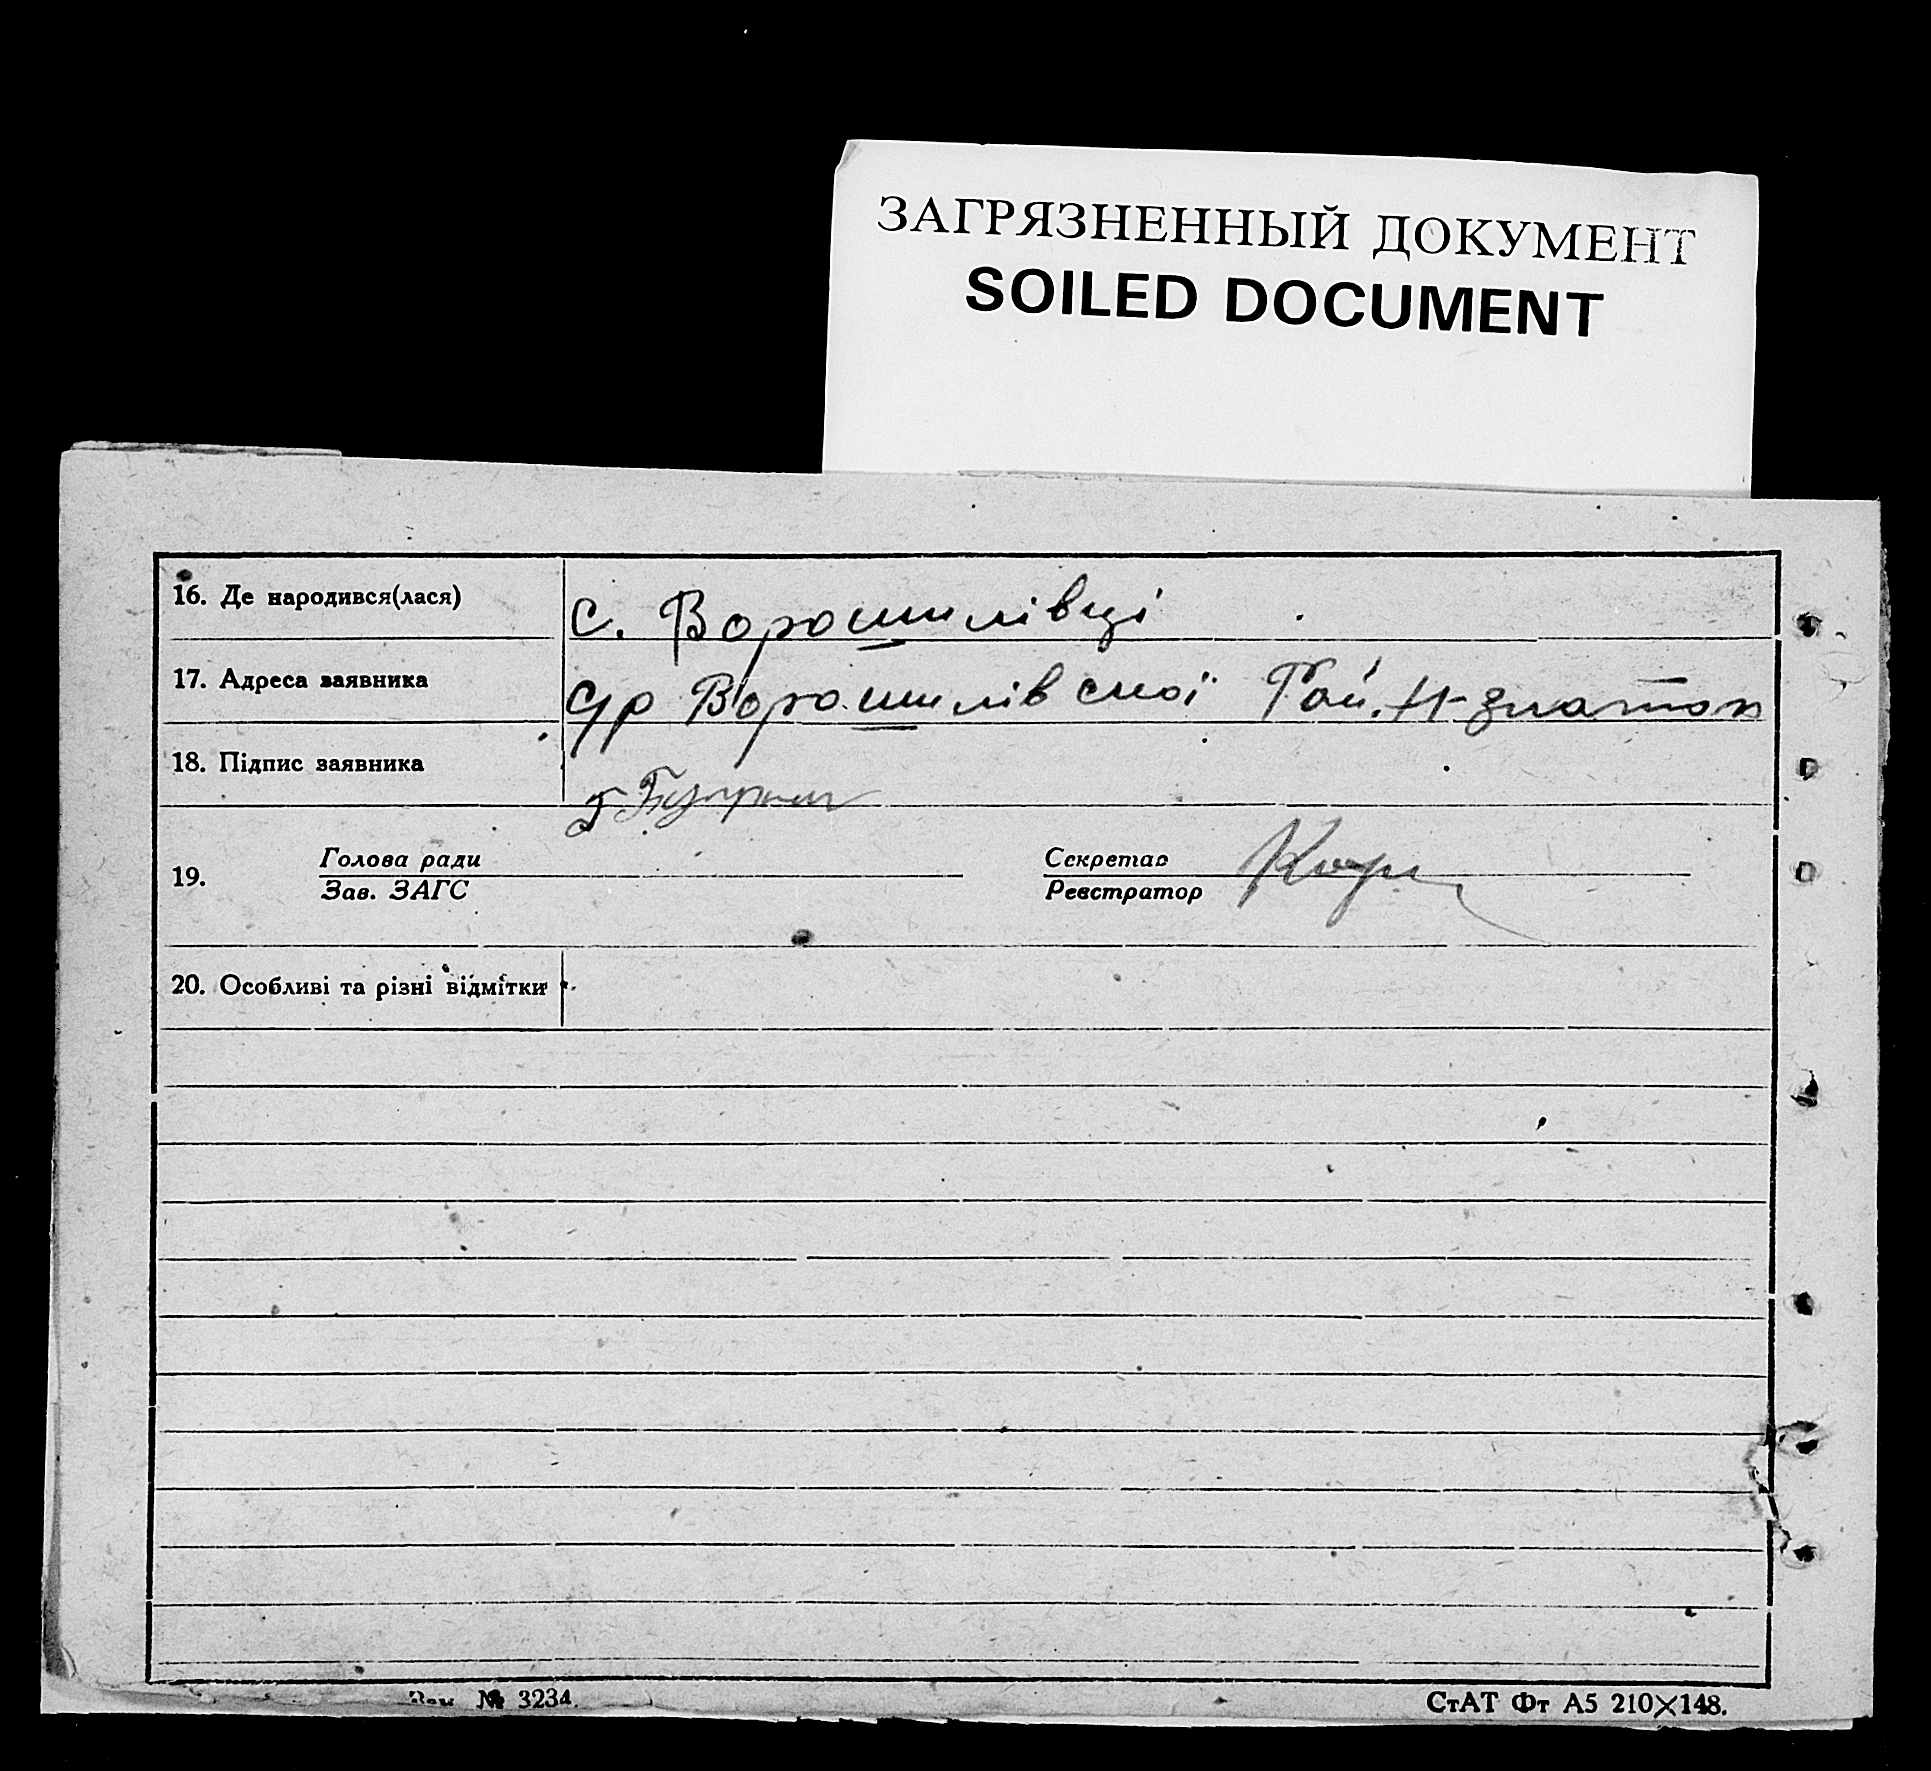 ЗАГРЯЗНЕННЫЙ ДОКУМЕНТ
SOILED DOCUMENT
16. Де народився(лася)
с. Ворошилівці
17. Адреса заявника
с/р Ворошилівської Рай.
18. Підпис заявника
19.
Голова ради
Зав. ЗАГС
Секретар
Реєстратор
20. Особливі та різні відмітки
Зам. № 3234.
СтАТ Фт А5 210×148.